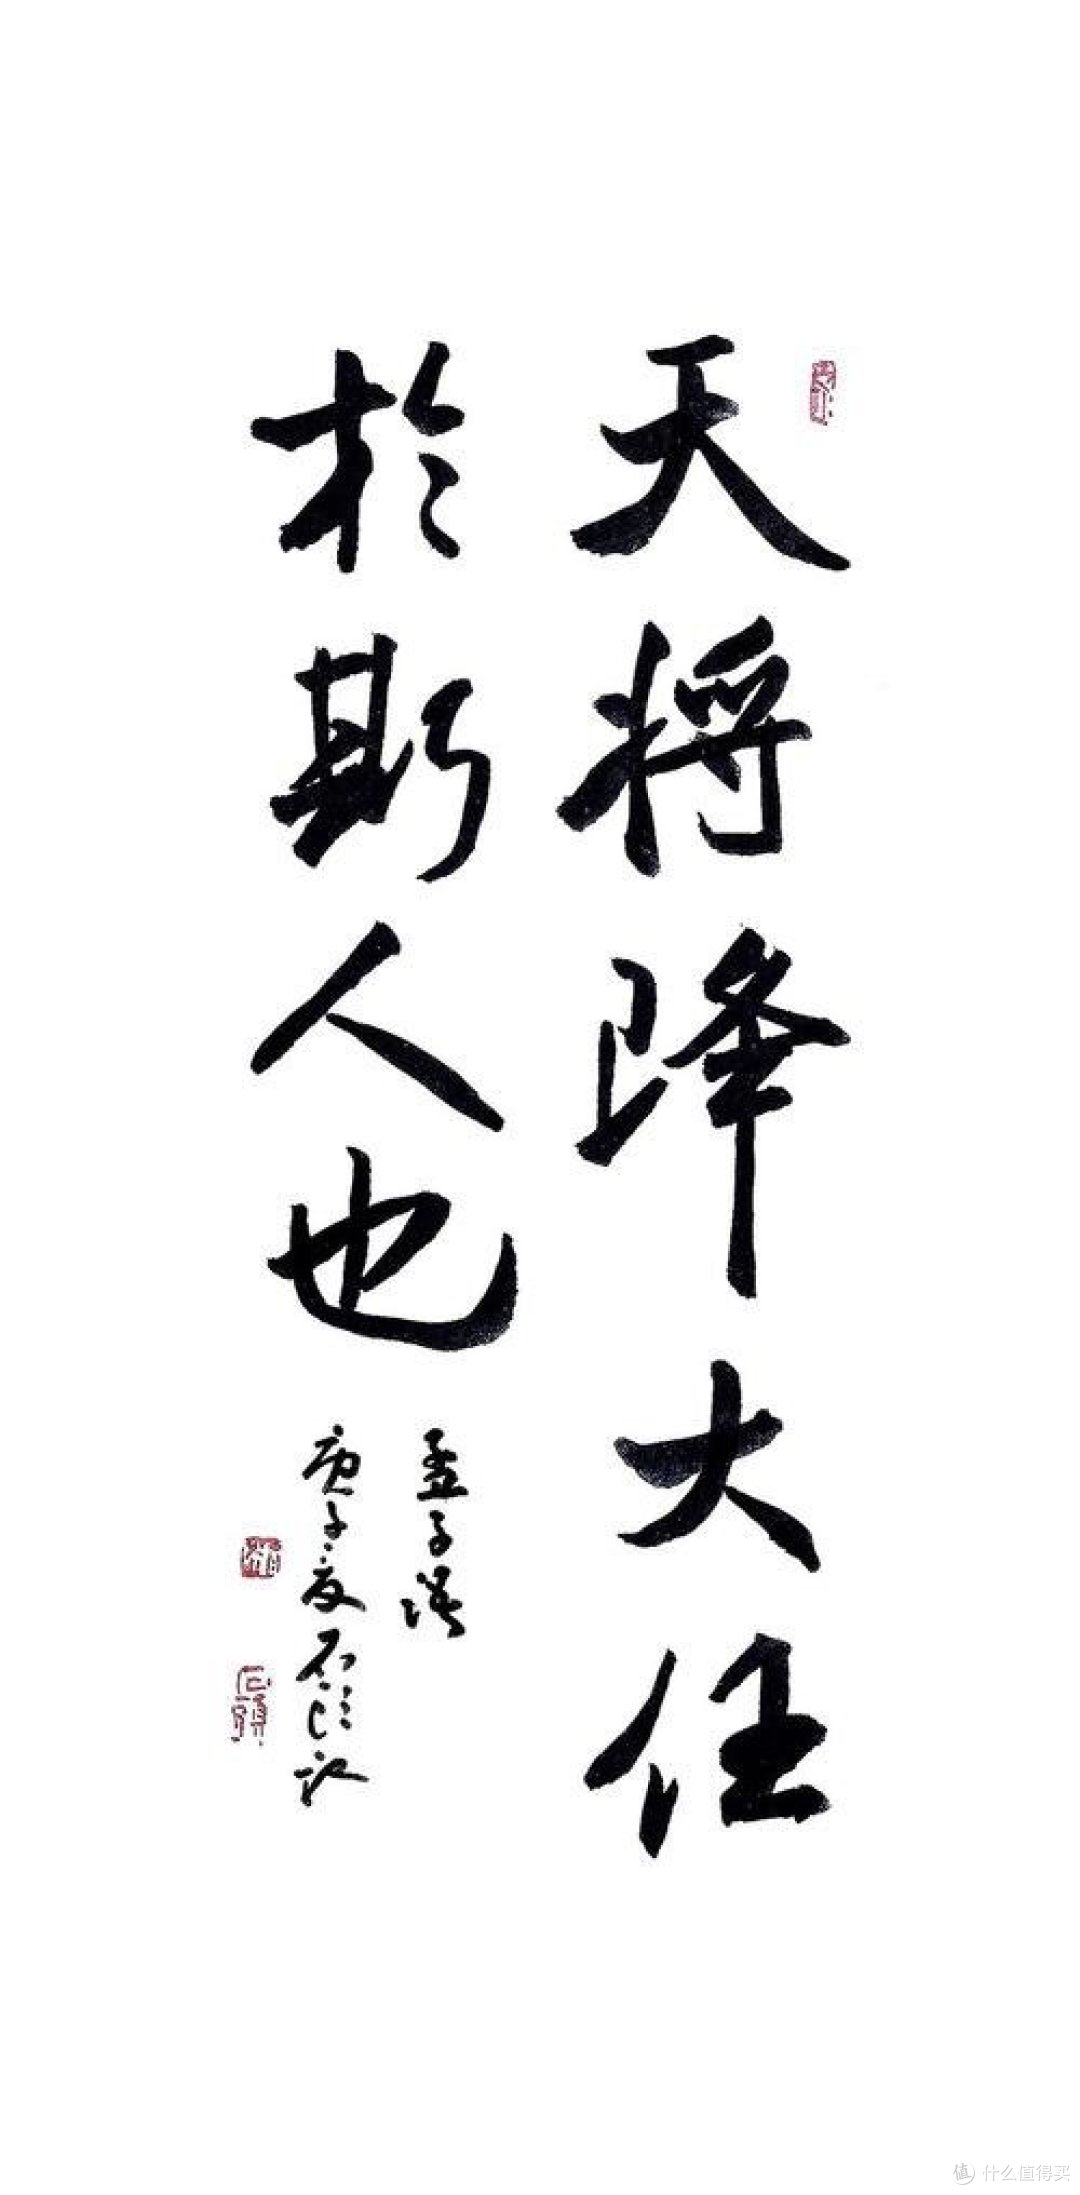 天将降大任
於斯人也
孟子语
庚子夏石
值 什么值得买